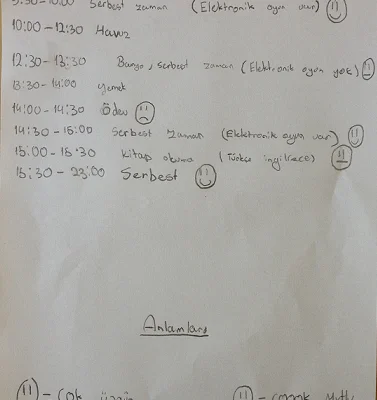 9:30-10:00 Serbest zaman (Elektronik oyun var)
10:00-12:30 Havuz
12:30-13:30 Banyo, serbest zaman (Elektronik oyun yok)
13:30-14:00 yemek
14:00-14:30 Ödev
14:30-15:00 Serbest zaman (Elektronik oyun var)
15:00-15:30 kitap okuma (Türkçe ingilizce)
15:30-23:00 Serbest
Anlamları
- Çok üzgün
- Mutlu